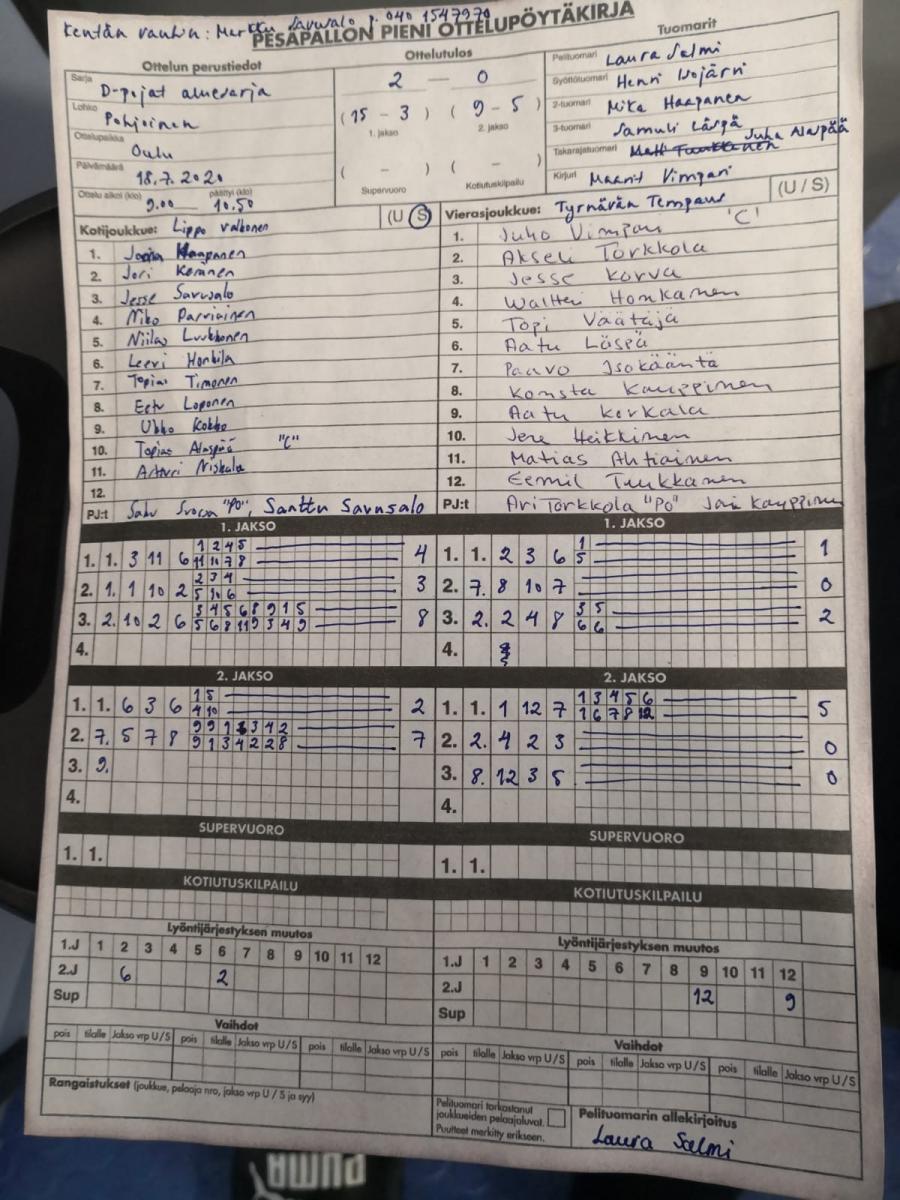 Kentän vanhin: Markku Saruwalo p. 040 1547970
PESÄPALLON PIENI OTTELUPÖYTÄKIRJA
Ottelun perustiedot
Sarja D-pojat aluesarja
Lohko Pohjoinen
Ottelupaikka Oulu
Päivämäärä 18.7.2020
Ottelu alkoi (klo) 9.00 päättyi (klo) 10.50
Ottelutulos
2 — 0
(15 - 3) (9 - 5)
1. jakso 2. jakso
( - ) ( - )
Supervuoro Kotiutuskilpailu
Tuomarit
Pelituomari Laura Salmi
Syöttötuomari Henri Isojärvi
2-tuomari Mika Haapanen
3-tuomari Samuli Läspä
Takarajatuomari Juha Alaspää
Kirjuri Maarit Vimpari
Kotijoukkue: Lippo valkonen (U S)
1. Joona Haapanen
2. Jori Keränen
3. Jesse Saruwalo
4. Niko Parviainen
5. Niilas Luukkonen
6. Leevi Honkila
7. Topias Timonen
8. Eetu Loponen
9. Ukko Kokko
10. Topias Alaspää "C"
11. Artturi Niskala
12.
PJ:t "PO", Santtu
Vierasjoukkue: Tyrnävän Tempaus (U / S)
1. Juho Vimpari 'C'
2. Akseli Torkkola
3. Jesse Korva
4. Waltteri Honkanen
5. Topi Väätäjä
6. Aatu Läspä
7. Paavo Isokääntä
8. Konsta Kauppinen
9. Aatu Kerkala
10. Jere Heikkinen
11. Matias Ahtiainen
12. Eemil Tuukkanen
PJ:t Ari Torkkola "PO" Jari Kauppinen
1. JAKSO
1. 1. 3 11 6 1 2 4 5 4
11 10 7 8
2. 1. 1 10 2 2 3 4 3
5 10 6
3. 2. 10 2 6 3 4 5 6 8 9 1 5 8
5 6 8 11 9 3 4 9
4.
1. JAKSO
1. 1. 2 3 6 1 1
5
2. 7. 8 10 7 0
3. 2. 2 4 8 3 5 2
6 6
4.
2. JAKSO
1. 1. 6 3 6 1 5 2
4 10
2. 7. 5 7 8 9 9 1 3 4 2 7
9 1 3 4 2 2 8
3. 9.
4.
2. JAKSO
1. 1. 1 12 7 1 3 4 5 6 5
1 6 7 8 12
2. 2. 4 2 3 0
3. 8. 12 3 5 0
4.
SUPERVUORO
1. 1.
SUPERVUORO
1. 1.
KOTIUTUSKILPAILU
KOTIUTUSKILPAILU
Lyöntijärjestyksen muutos
1.J 1 2 3 4 5 6 7 8 9 10 11 12
2.J 6 2
Sup
Lyöntijärjestyksen muutos
1.J 1 2 3 4 5 6 7 8 9 10 11 12
2.J 12 9
Sup
Vaihdot
pois tilalle Jakso vrp U/S pois tilalle Jakso vrp U/S pois tilalle Jakso vrp U/S
Vaihdot
pois tilalle Jakso vrp U/S pois tilalle Jakso vrp U/S pois tilalle Jakso vrp U/S
Rangaistukset (joukkue, pelaaja nro, jakso vrp U / S ja syy)
Pelituomari tarkastanut
joukkueiden pelaajaluvat.
Puutteet merkitty erikseen.
Pelituomarin allekirjoitus
Laura Salmi
PUMA